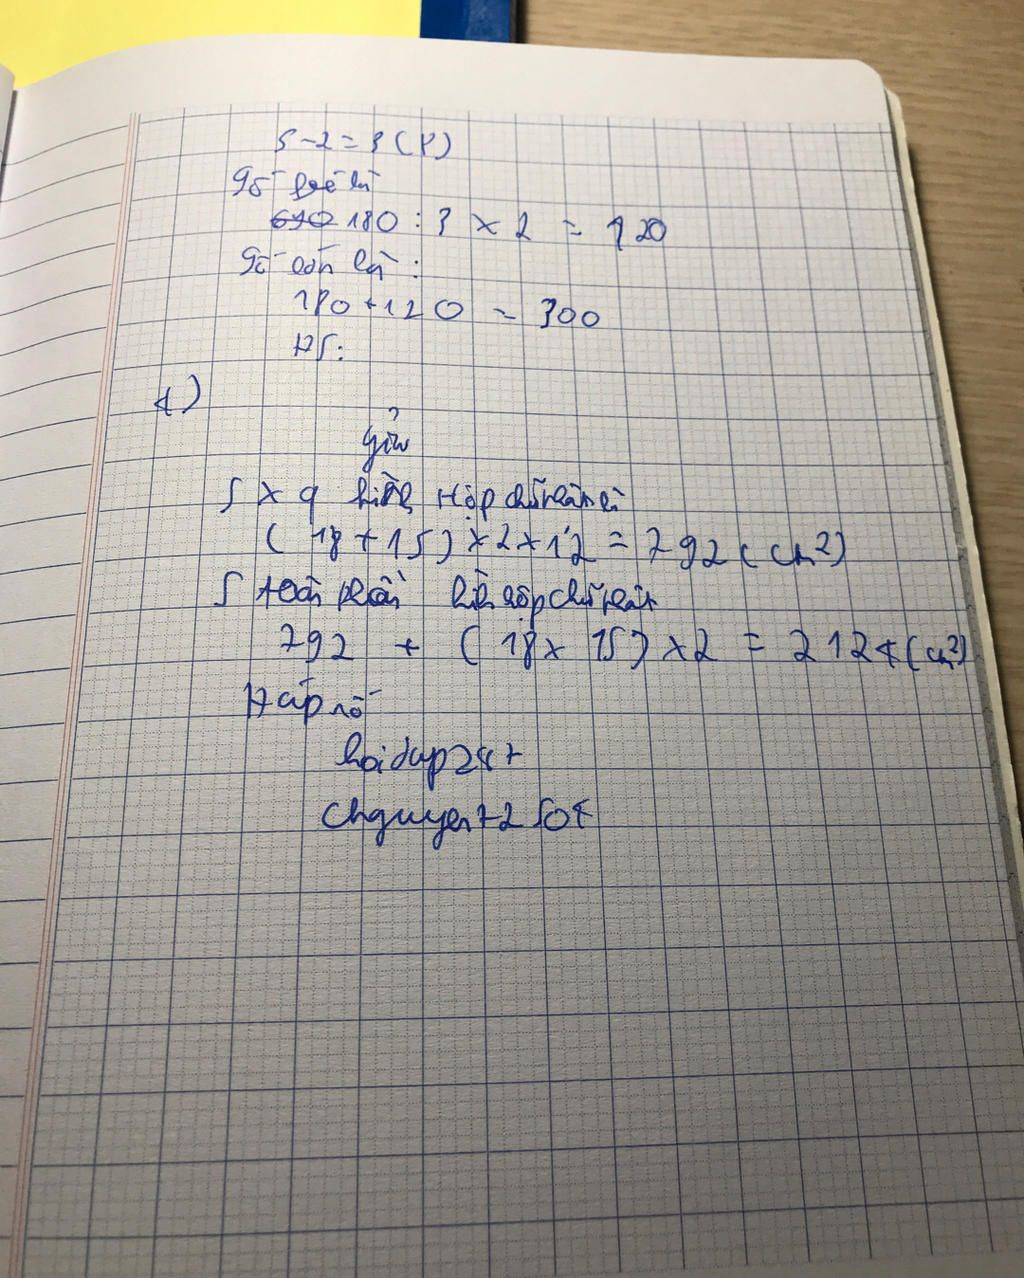 5 - 2 = 3 (P)
Số bé là
180 : 3 x 2 = 120
Số lớn là :
180 + 120 = 300
ĐS:
4)
giải
S xq hình hộp chữ nhật là
( 18 + 15 ) x 2 x 12 = 792 ( cm²)
S toàn phần hình hộp chữ nhật
792 + ( 18 x 15 ) x 2 = 2124 ( cm²)
Đáp số
hoidap247
chguyen72504